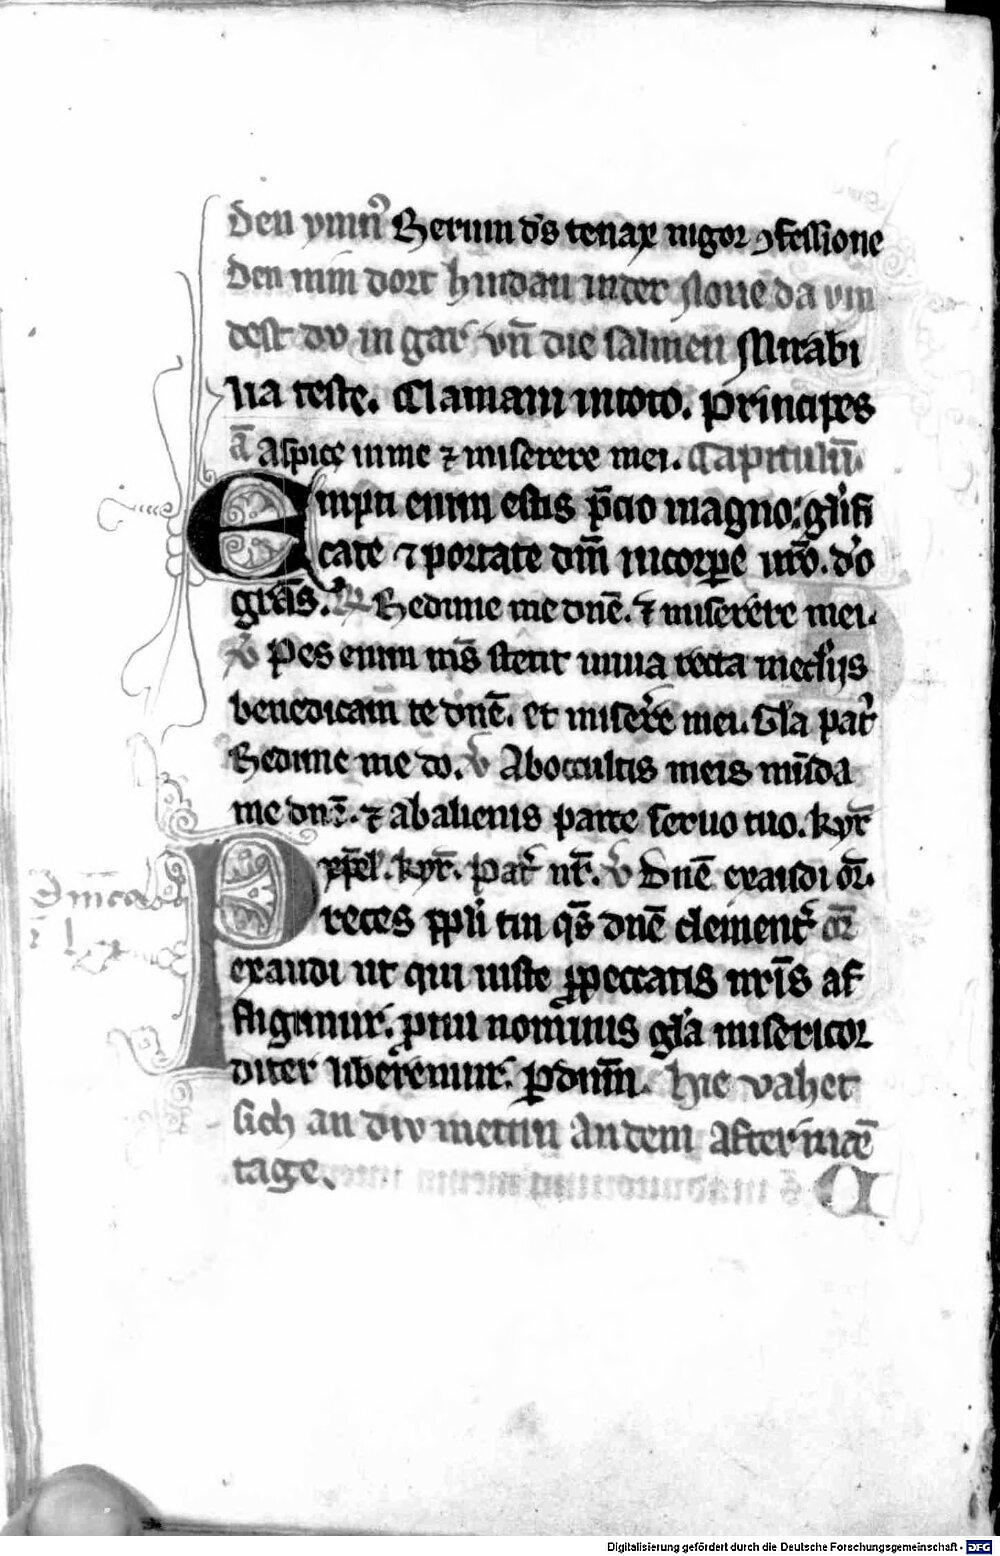 den ymnꝰ Rerum dˢs tenax uigor ꝯfessione
den min dort hindan in der None da vin
dest dv in gar vn̄ die salmen Mirabi
lia teste. Clamaui in toto. Principes
ā Aspice in me ⁊ miserere mei. Capitulū
Empti enim estis p̄cio magno: glˀifi
cate ⁊ portate dm̄ in corpore uro̅. dˀo
gras̅. R Redime me dnē. ⁊ miserere mei.
V Pes enim mˢ stetit in uia recta in ecclˀijs
benedicam te dnē. et miserˀe mei. Gla patˀ
Redime me do. V Ab occultis meis mūda
me dne̅. ⁊ ab alienis parce seruo tuo. kyr̄
xp̄el. kyr̄. Patˀ nr̄. V Dnē exaudi or̄.
Preces ppli tui qs̄ dnē clementˀ or̄
exaudi ut qui iuste ꝓ peccatis nrīs af
fligimurˀ. ꝓ tui nominis glˀa misericor
diter liberemurˀ. ꝑ dnm̄. hie vahet
sich an div mettin an dem aftermæ̅
tage.
Dn̄ica
ī lxx